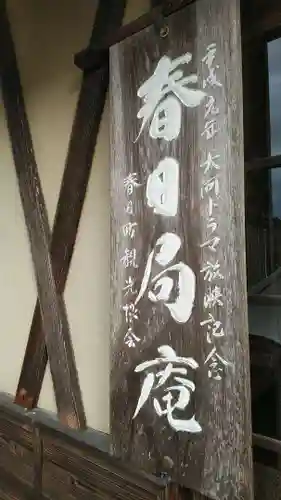 平成元年 大河ドラマ放映記念
春日局庵
春日町観光協会